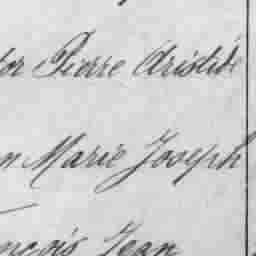 tor Pierre Aristide
n Marie Joseph
nçois Jean